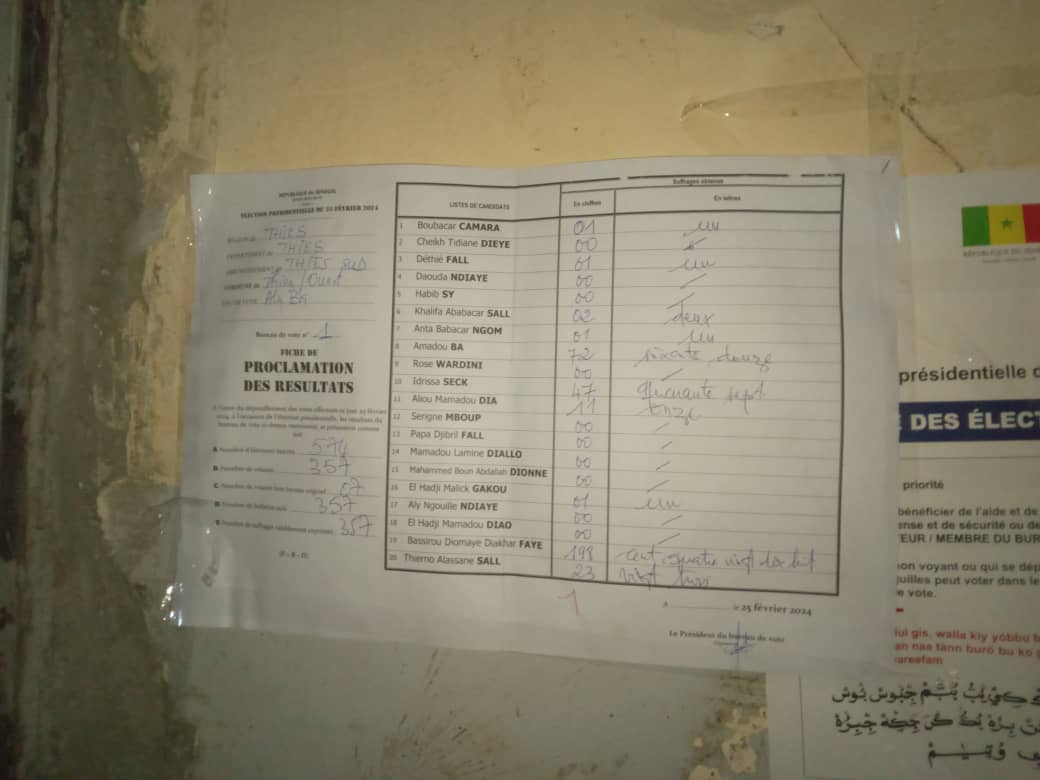 RÉPUBLIQUE du SENEGAL
ELECTION PRESIDENTIELLE DU 25 FÉVRIER 2024
REGION de THIES
DEPARTEMENT de THIES
ARRONDISSEMENT THIES
COMMUNE de Thies/Ouest
LIEU DE VOTE: Aly Ba
Bureau de vote n° 1
FICHE DE
PROCLAMATION
DES RESULTATS
A l'issue du dépouillement des votes effectués ce jour, 25 février
2024, à l'occasion de l'élection présidentielle, les résultats du
bureau de vote ci-dessus mentionné, se présentent comme
suit
A Nombre d'électeurs inscrits 574
B Nombre de votants 357
C Nombre de votants hors bureau originel 07
D Nombre de bulletins nuls 357
E Nombre de suffrages valablement exprimés 357
(E = B - D)
LISTES DE CANDIDATS Suffrages obtenus
En chiffres En lettres
1 Boubacar CAMARA 01 un
2 Cheikh Tidiane DIEYE 00
3 Déthié FALL 01 un
4 Daouda NDIAYE 00
5 Habib SY 00
6 Khalifa Ababacar SALL 02 deux
7 Anta Babacar NGOM 01 un
8 Amadou BA 72 soixante douze
9 Rose WARDINI 00
10 Idrissa SECK 47 Quarante sept
11 Aliou Mamadou DIA 11 Onze
12 Serigne MBOUP 00
13 Papa Djibril FALL 00
14 Mamadou Lamine DIALLO 00
15 Mahammed Boun Abdallah DIONNE 00
16 El Hadji Malick GAKOU 01 un
17 Aly Ngouille NDIAYE 00
18 El Hadji Mamadou DIAO 00
19 Bassirou Diomaye Diakhar FAYE 198 cent quatre vingt dix huit
20 Thierno Alassane SALL 23 vingt trois
1
A le 25 février 2024
Le Président du bureau de vote
RÉPUBLIQUE DU
présidentielle d
DES ÉLECT
priorité
bénéficier de l'aide et de
ense et de sécurité ou de
EUR / MEMBRE DU BUR
non voyant ou qui se dép
quilles peut voter dans le
e vote.
lul gis, walla kiy yóbbu b
an naa tànn buró bu ko
wareefam